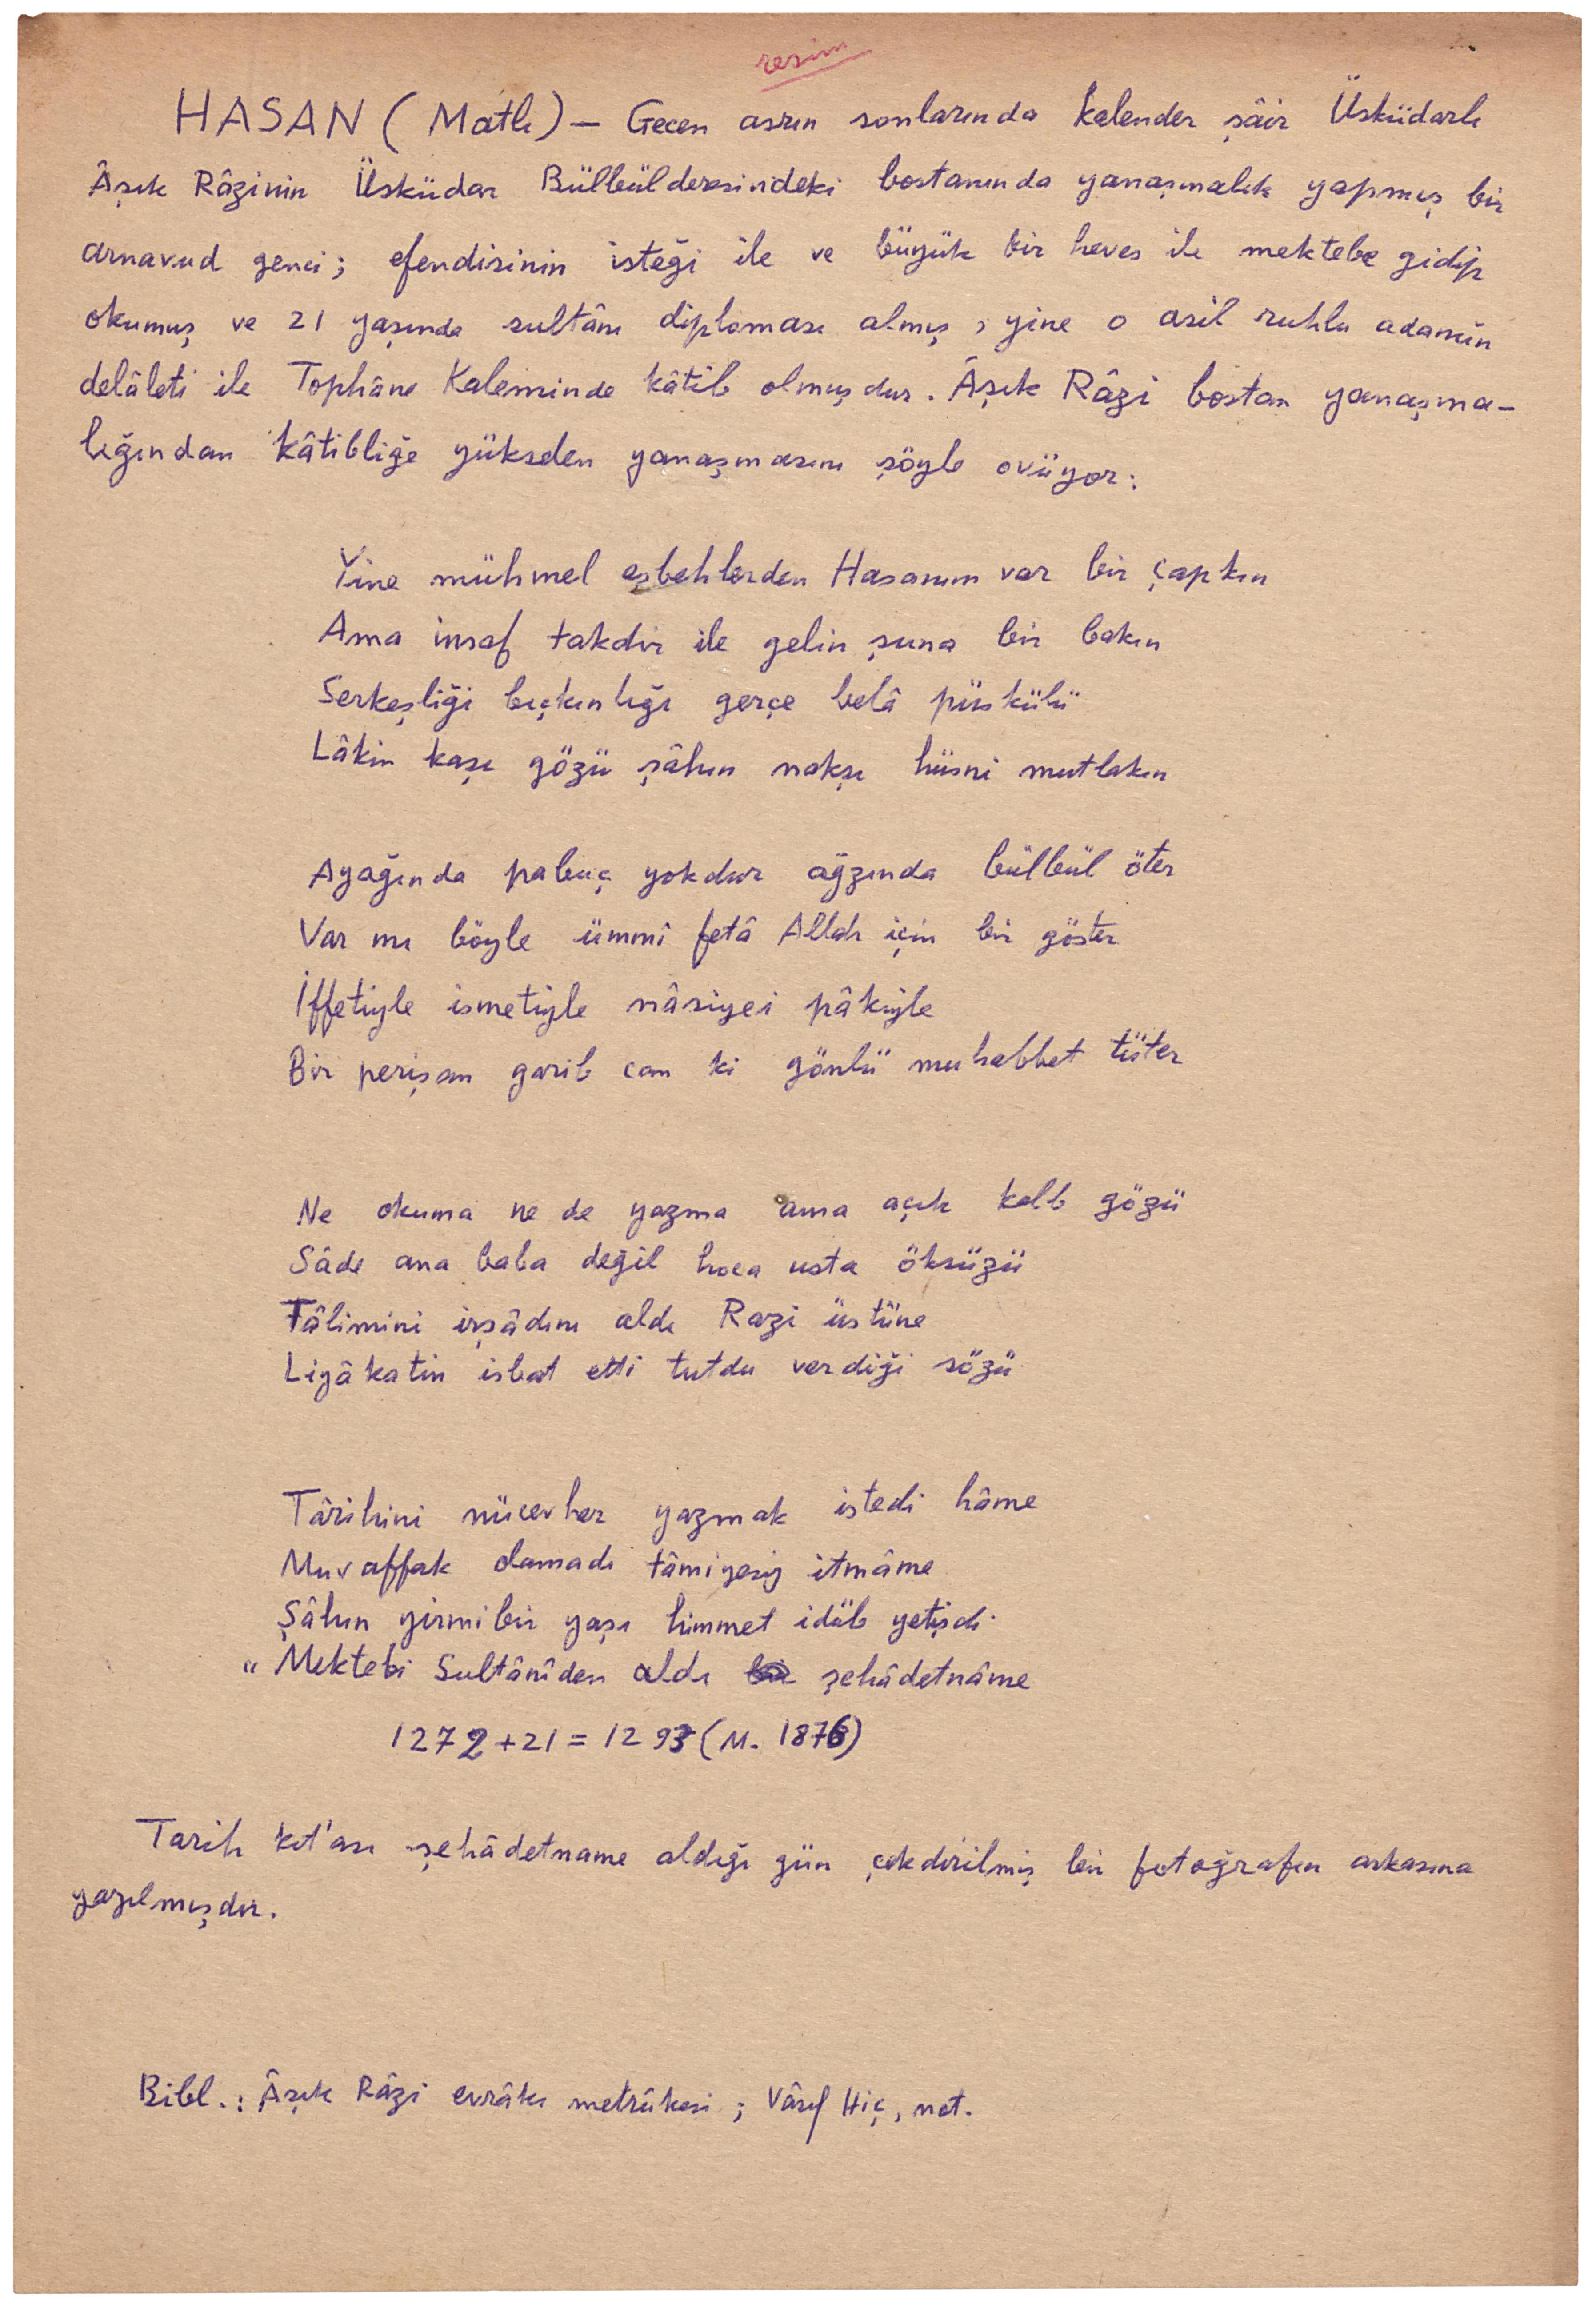 resim
HASAN (Matlı) — Geçen asrın sonlarında kalender şâir Üsküdarlı
Âşık Râzinin Üsküdar Bülbülderesindeki bostanında yanaşmalık yapmış bir
arnavud genci; efendisinin isteği ile ve büyük bir heves ile mektebe gidip
okumuş ve 21 yaşında sultânı diploması almış, yine o asil ruhlu adamın
delâleti ile Tophâne Kaleminde kâtib olmuşdur. Âşık Râzi bostan yanaşma-
lığından kâtibliğe yükselen yanaşmasını şöyle övüyor:
Yine mühmel eşbehlerden Hasanım var bir çapkın
Ama insaf takdir ile gelin şuna bir bakın
Serkeşliği bıçkınlığı gerçe belâ püskülü
Lâkin kaşı gözü şâhın nakşı hüsni mutlakın
Ayağında pabuç yokdur ağzında bülbül öter
Var mı böyle ümmî fetâ Allah için bir göster
İffetiyle ismetiyle nâsiyei pâkiyle
Bir perişan garib can ki gönlü muhabbet tüter
Ne okuma ne de yazma ama açık kalb gözü
Sâde ana baba değil hoca usta öksüzü
Tâlimini irşâdını aldı Razi üstüne
Liyâkatin isbat etti tutdu verdiği sözü
Târihini mücevher yazmak istedi hâme
Muvaffak olamadı tâmiyesiz itmâme
Şâhın yirmibir yaşı himmet idüb yetişdi
" Mektebi Sultânîden aldı şehâdetnâme
1272+21=1293 (M. 1876)
Tarih kıt'ası şehâdetname aldığı gün çekdirilmiş bir fotoğrafın arkasına
yazılmışdır.
Bibl.: Âşık Râzi evrâkı metrûkesi; Vâsıf Hiç, not.